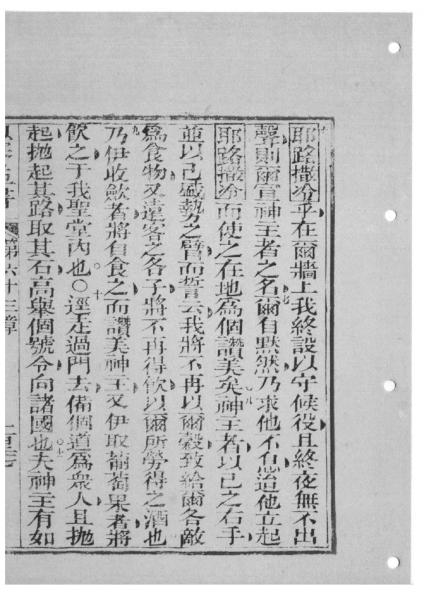 耶路撒冷乎在爾牆上我終設以守候役且終夜無不出
聲則爾宣神主者之名爾自默然乃求他不有怠迨他立起
耶路撒冷而使之在地為個讚美矣神主者以己之右手
並以己盛勢之臂而誓云我將不再以爾穀致給爾各敵
為食物又遠客之各子將不再得飲以爾所勞得之酒也
乃伊收歛者將自食之而讚美神主又伊取葡萄果者將
飲之于我聖堂內也○逕走過門去備個道為眾人且拋
起拋起其路取其石高舉個號令向諸國也夫神主有如
第六十三章